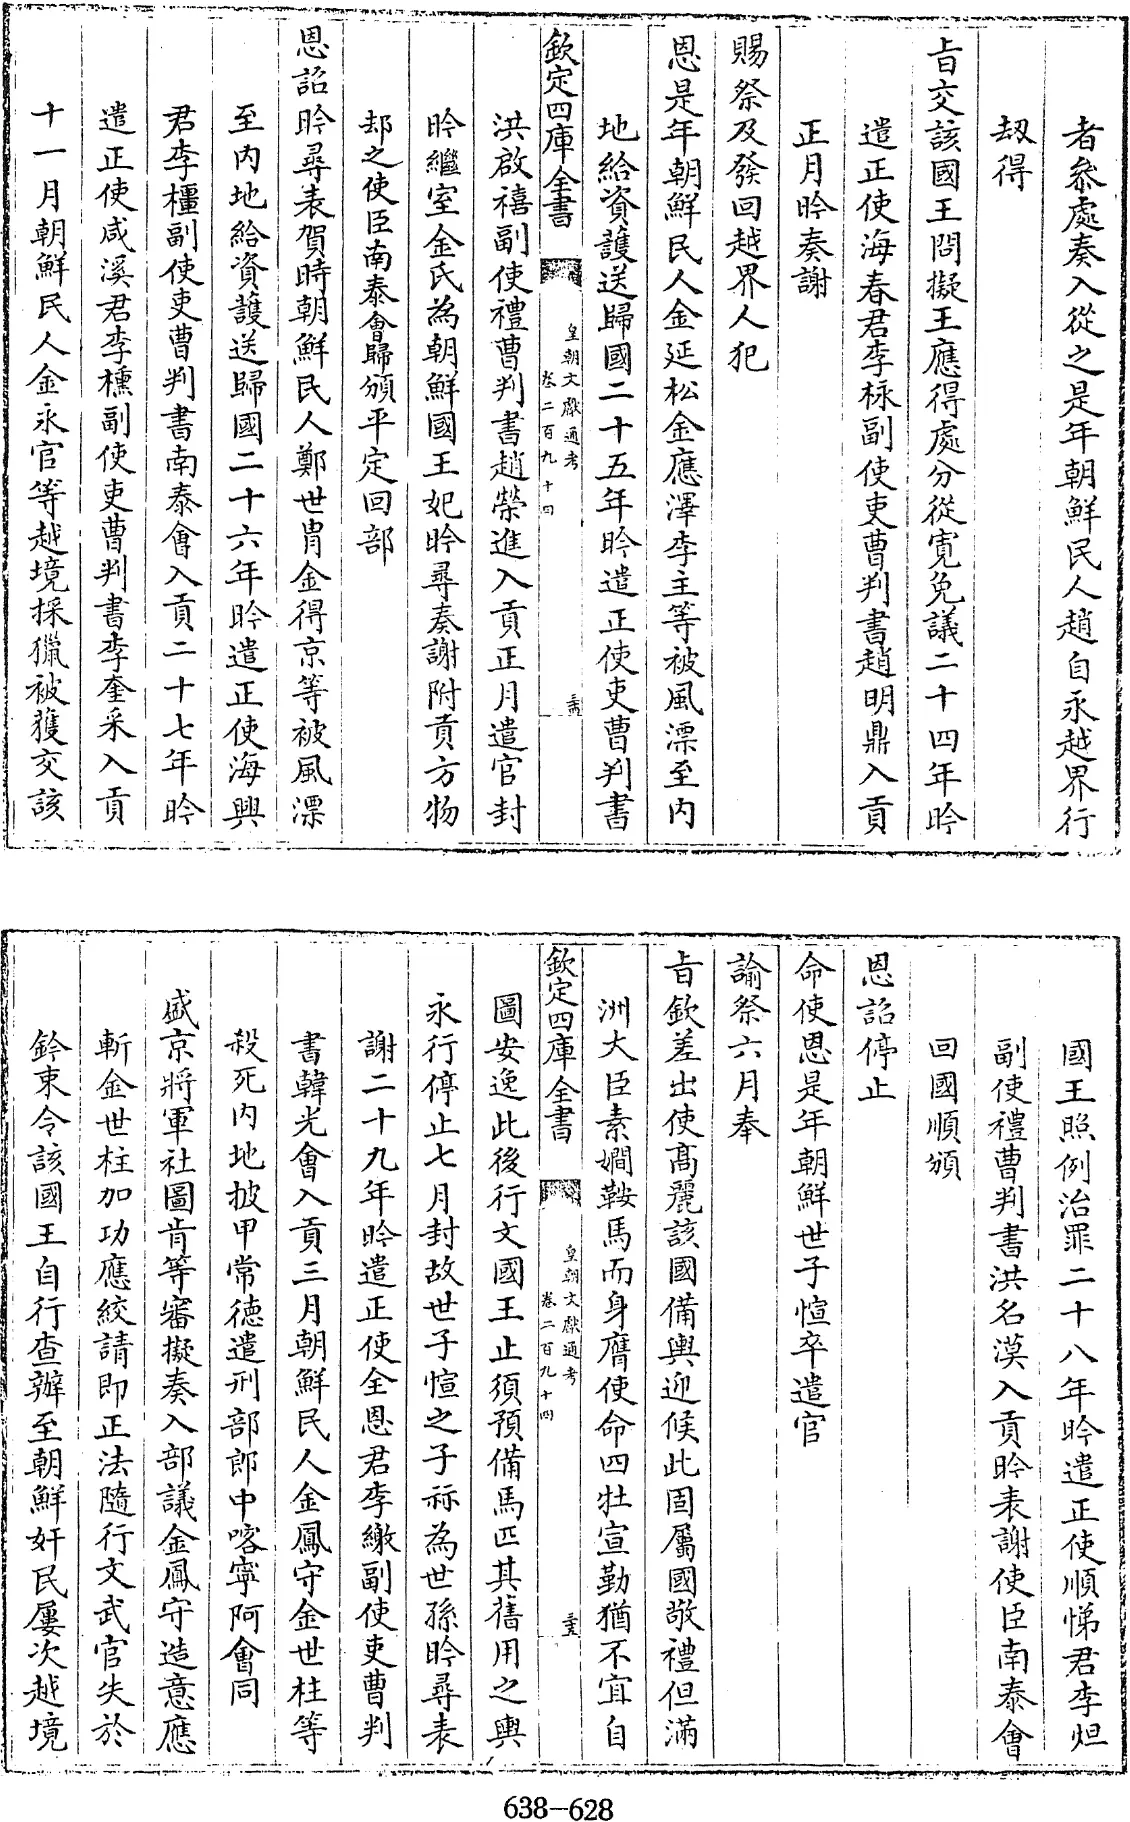 者叅處奏入從之是年朝鮮民人趙自永越界行
刼得
旨交該國王問擬王應得處分從寛免議二十四年昑
遣正使海春君李栐副使吏曹判書趙明鼎入貢
正月昑奏謝
賜祭及發回越界人犯
恩是年朝鮮民人金延松金應澤李主等被風漂至内
地給資護送歸國二十五年昑遣正使吏曹判書
欽定四庫全書
皇朝文獻通考
卷二百九十四
洪啟禧副使禮曹判書趙榮進入貢正月遣官封
昑繼室金氏為朝鮮國王妃昑尋奏謝附貢方物
却之使臣南泰會歸頒平定回部
恩詔昑尋表賀時朝鮮民人鄭世胄金得京等被風漂
至内地給資護送歸國二十六年昑遣正使海興
君李橿副使吏曹判書南泰會入貢二十七年昑
遣正使咸溪君李櫄副使吏曹判書李奎采入貢
十一月朝鮮民人金永官等越境採獵被獲交該
國王照例治罪二十八年昑遣正使順悌君李炟
副使禮曹判書洪名漢入貢昑表謝使臣南泰會
回國順頒
恩詔停止
命使恩是年朝鮮世子愃卒遣官
諭祭六月奉
旨欽差出使高麗該國備輿迎候此固屬國敬禮但滿
洲大臣素嫺鞍馬而身膺使命四牡宣勤猶不宜自
欽定四庫全書
皇朝文獻通考
卷二百九十四
圖安逸此後行文國王止須預備馬匹其舊用之輿
永行停止七月封故世子愃之子祘為世孫昑尋表
謝二十九年昑遣正使全恩君李㷩副使吏曹判
書韓光會入貢三月朝鮮民人金鳳守金世柱等
殺死内地披甲常德遣刑部郎中喀寧阿會同
盛京將軍社圖肯等審擬奏入部議金鳳守造意應
斬金世柱加功應絞請即正法隨行文武官失於
鈐束令該國王自行查辦至朝鮮奸民屢次越境
638-628